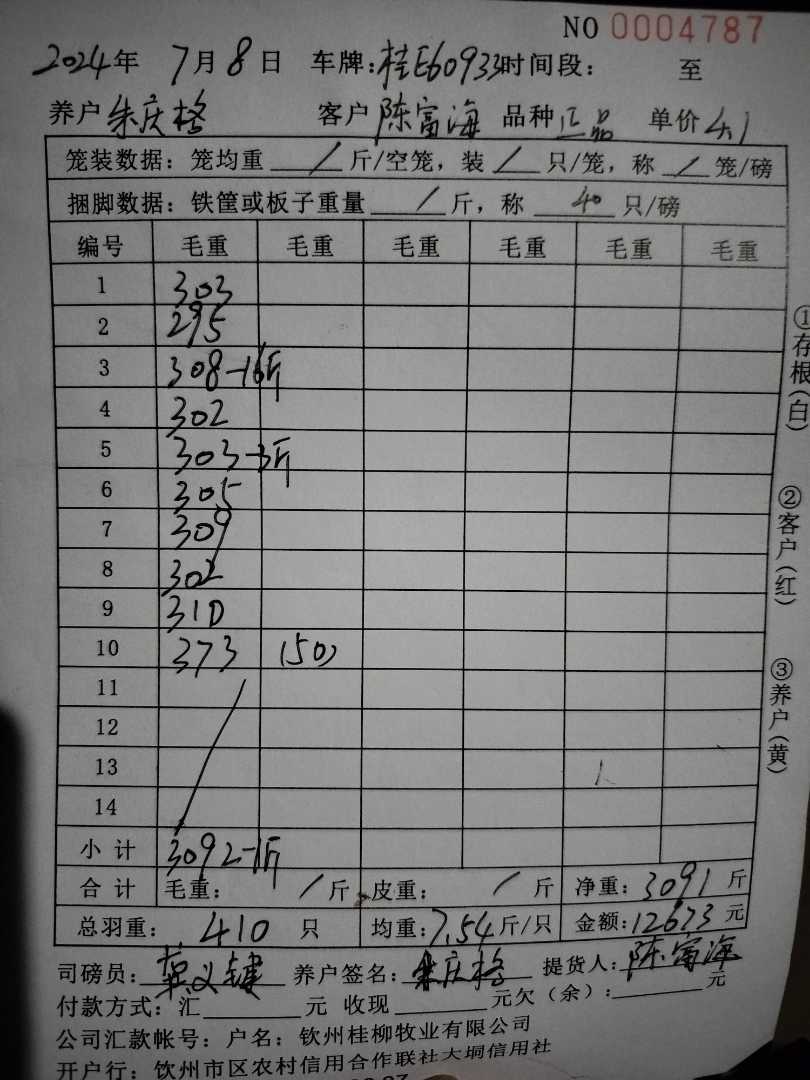 NO 0004787
2024年 7月8日 车牌:桂E60933时间段: 至
养户 朱庆格 客户 陈富海 品种 正品 单价 4.1
笼装数据:笼均重 / 斤/空笼,装 / 只/笼,称 / 笼/磅
捆脚数据:铁筐或板子重量 / 斤,称 40 只/磅
编号 毛重 毛重 毛重 毛重 毛重 毛重
1 303
2 295
3 308-16斤
4 302
5 303-3斤
6 305
7 309
8 302
9 310
10 373 (50)
11
12
13
14
小计 3092-1斤
合计 毛重: / 斤 皮重: / 斤 净重: 3091 斤
总羽重: 410 只 均重: 7.54 斤/只 金额: 12673 元
司磅员: 养户签名: 朱庆格 提货人: 陈富海
付款方式:汇 元 收现 元欠(余): 元
公司汇款帐号:户名:钦州桂柳牧业有限公司
开户行:钦州市区农村信用合作联社大垌信用社
①存根(白)
②客户(红)
③养户(黄)